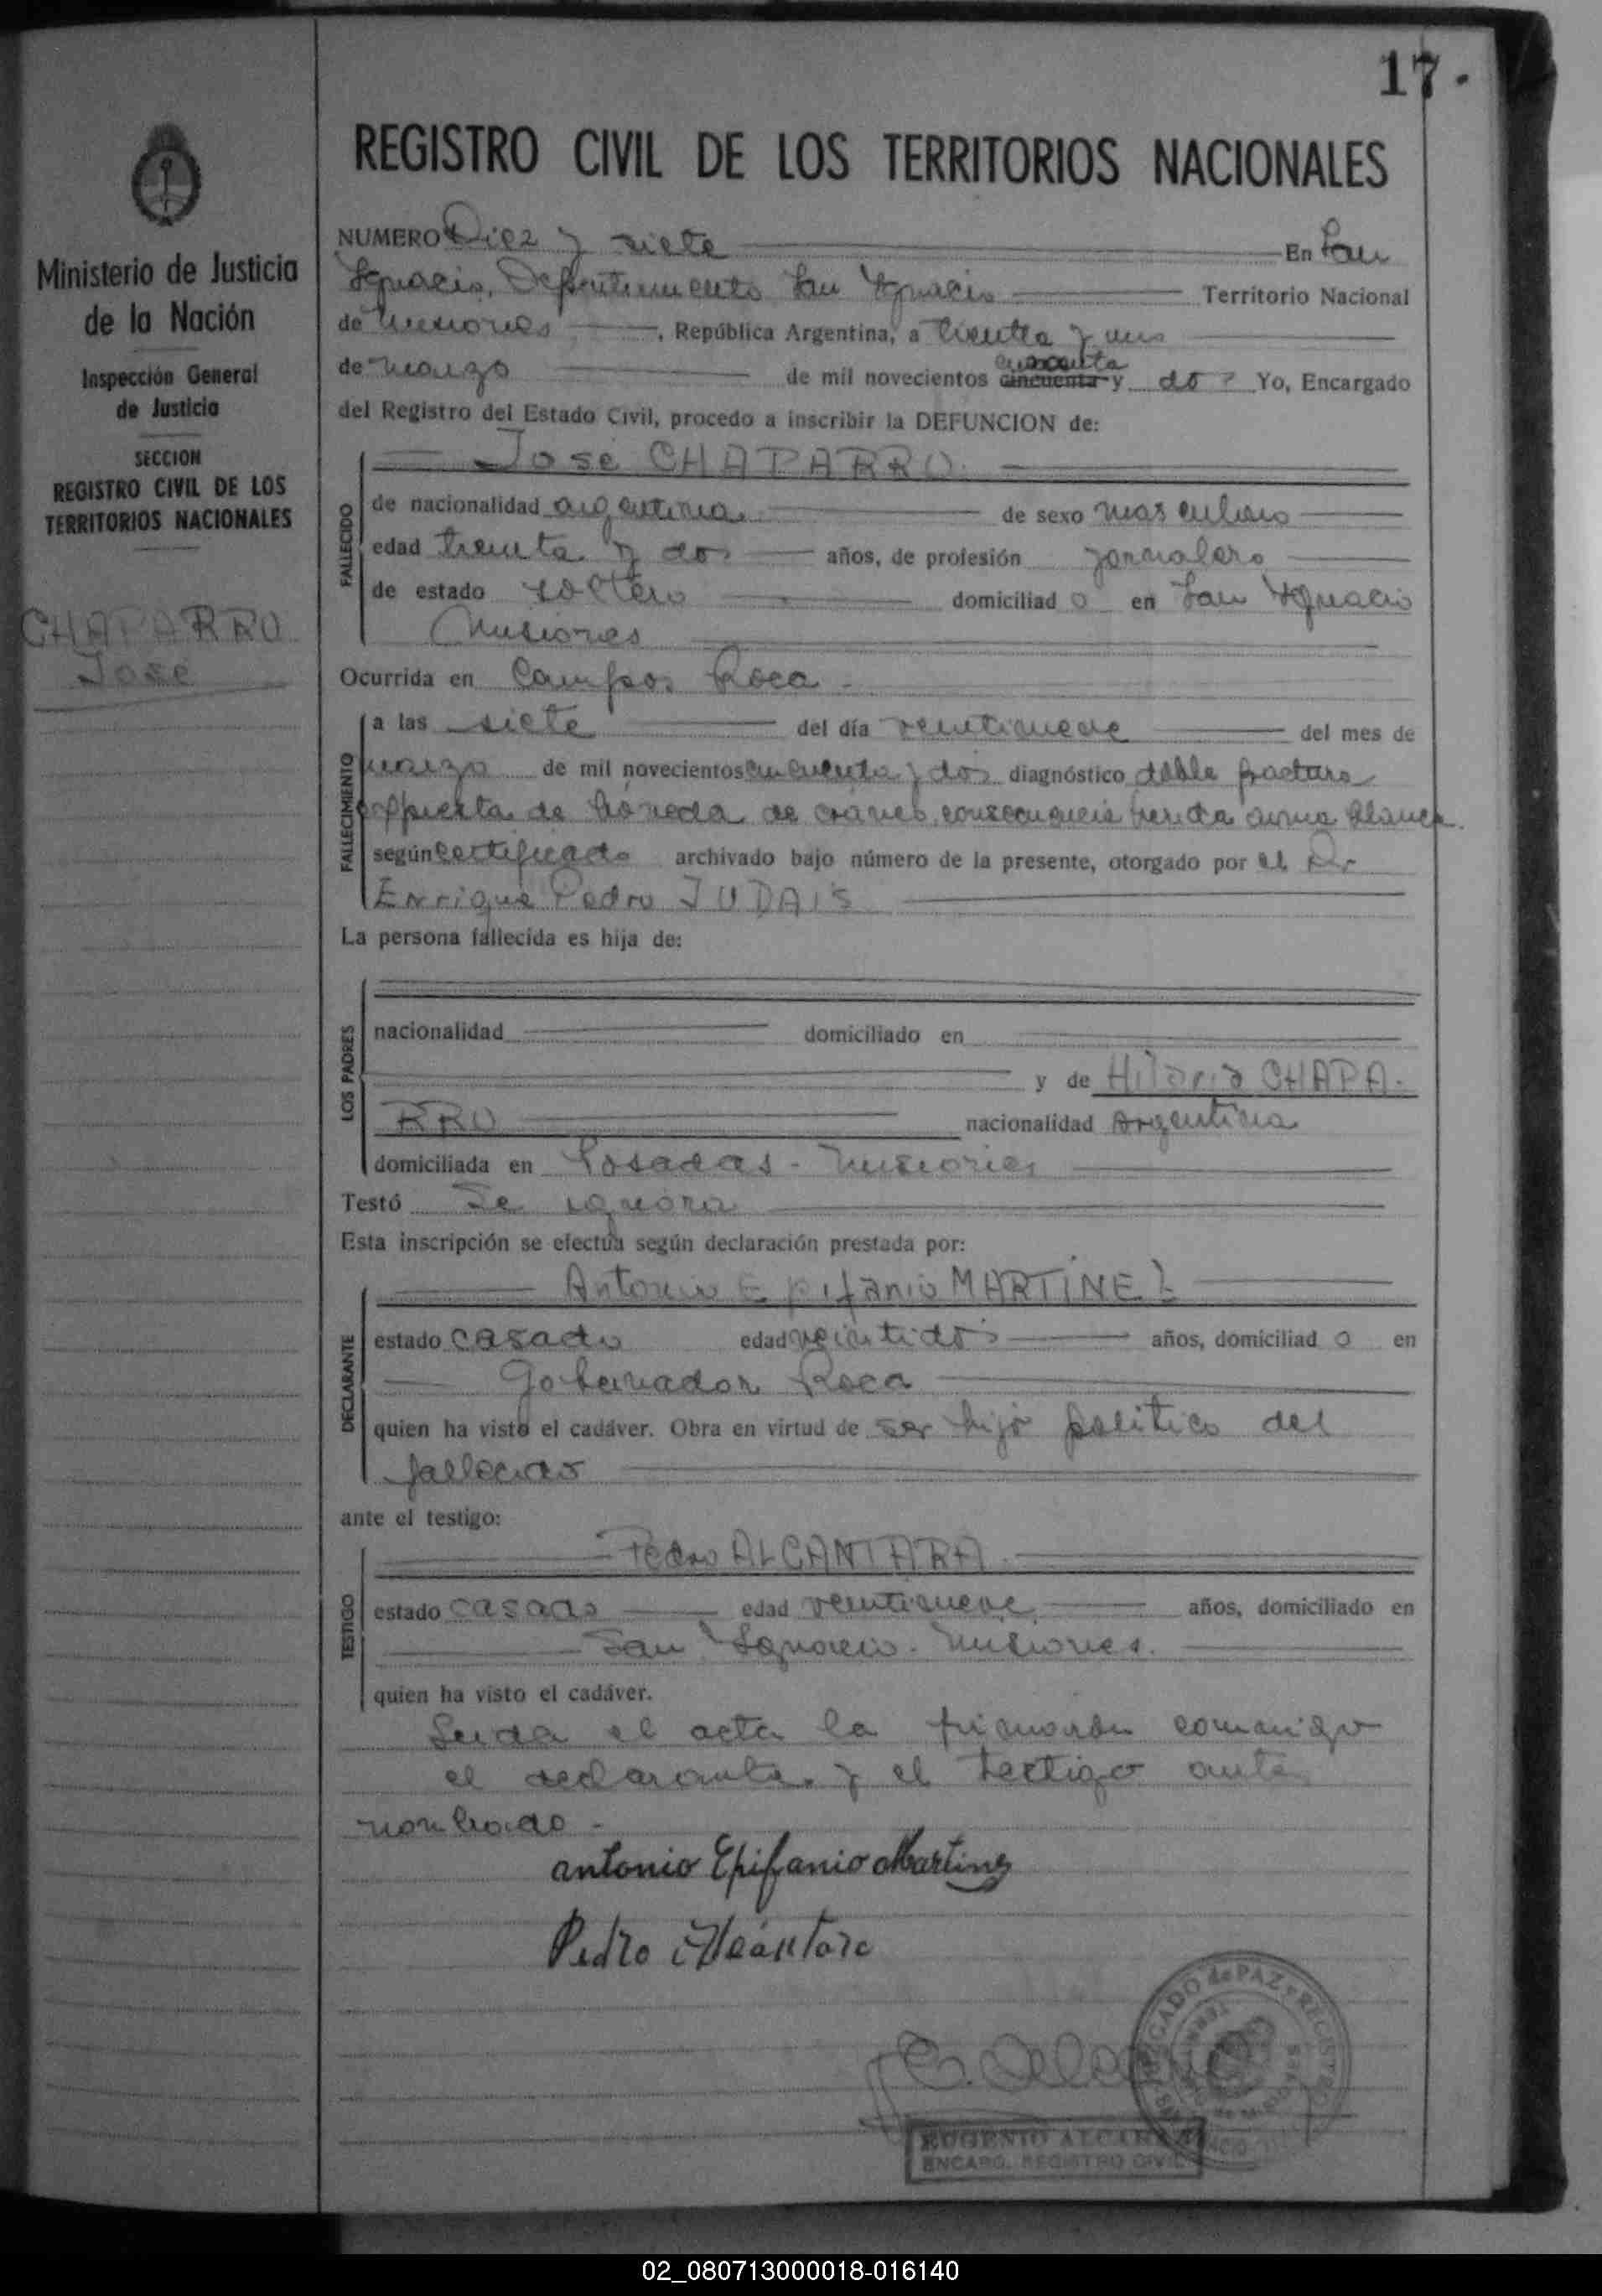 17.
REGISTRO CIVIL DE LOS TERRITORIOS NACIONALES
Ministerio de Justicia
de la Nación
Inspección General
de Justicia
SECCION
REGISTRO CIVIL DE LOS
TERRITORIOS NACIONALES
CHAPARRO
José
NUMERO Diez y siete En San
Ignacio, Departamento San Ignacio Territorio Nacional
de Misiones, República Argentina, a treinta y uno
de marzo de mil novecientos cincuenta y dos Yo, Encargado
del Registro del Estado Civil, procedo a inscribir la DEFUNCION de:
José CHAPARRO.
FALLECIDO
de nacionalidad argentina de sexo masculino
edad treinta y dos años, de profesión jornalero
de estado soltero domiciliad o en San Ignacio
Misiones
Ocurrida en Campos Roca -
FALLECIMIENTO
a las siete del día veintinueve del mes de
marzo de mil novecientos cincuenta y dos diagnóstico doble fractura
expuesta de bóveda de craneo, consecuencia herida arma blanca.
según certificado archivado bajo número de la presente, otorgado por el Dr
Enrique Pedro JUDAIS
La persona fallecida es hija de:
LOS PADRES
nacionalidad domiciliado en
y de Hilaria CHAPA-
RRO nacionalidad Argentina
domiciliada en Posadas - Misiones
Testó Se ignora
Esta inscripción se efectúa según declaración prestada por:
Antonio Epifanio MARTINEZ
DECLARANTE
estado casado edad veintidós años, domiciliad o en
Gobernador Roca
quien ha visto el cadáver. Obra en virtud de ser hijo político del
fallecido
ante el testigo:
Pedro ALCANTARA.
TESTIGO
estado casado edad veintinueve años, domiciliado en
San Ignacio - Misiones.
quien ha visto el cadáver.
Leida el acta la firmaron conmigo
el declarante y el testigo ante
nombrado -
antonio Epifanio Martinez
Pedro Alcántara
JUZGADO de PAZ y REGISTRO
EUGENIO
ENCARG. REGISTRO CIVIL
02_080713000018-016140